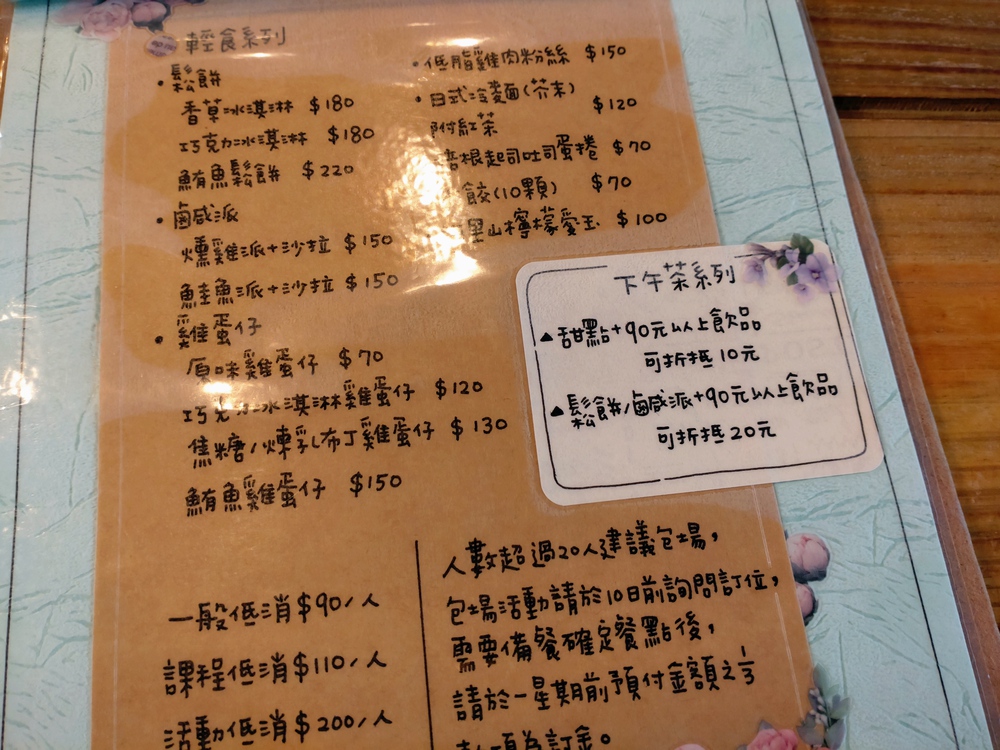 輕食系列
•鬆餅
香草冰淇淋 $180
巧克力冰淇淋 $180
鮪魚鬆餅 $220
•鹹派
燻雞派+沙拉 $150
鮭魚派+沙拉 $150
•雞蛋仔
原味雞蛋仔 $70
巧克力冰淇淋雞蛋仔 $120
焦糖/煉乳布丁雞蛋仔 $130
鮪魚雞蛋仔 $150
•低脂雞肉粉絲 $150
•日式涼麵(芥末) $120
附紅茶
培根起司吐司蛋捲 $70
餃(10顆) $70
里山檸檬愛玉 $100
下午茶系列
▲甜點+90元以上飲品
可折抵10元
▲鬆餅/鹹派+90元以上飲品
可折抵20元
一般低消$90/人
課程低消$110/人
活動低消$200/人
人數超過20人建議包場,
包場活動請於10日前詢問訂位,
需要備餐確定餐點後,
請於一星期前預付金額之1/3
為訂金。